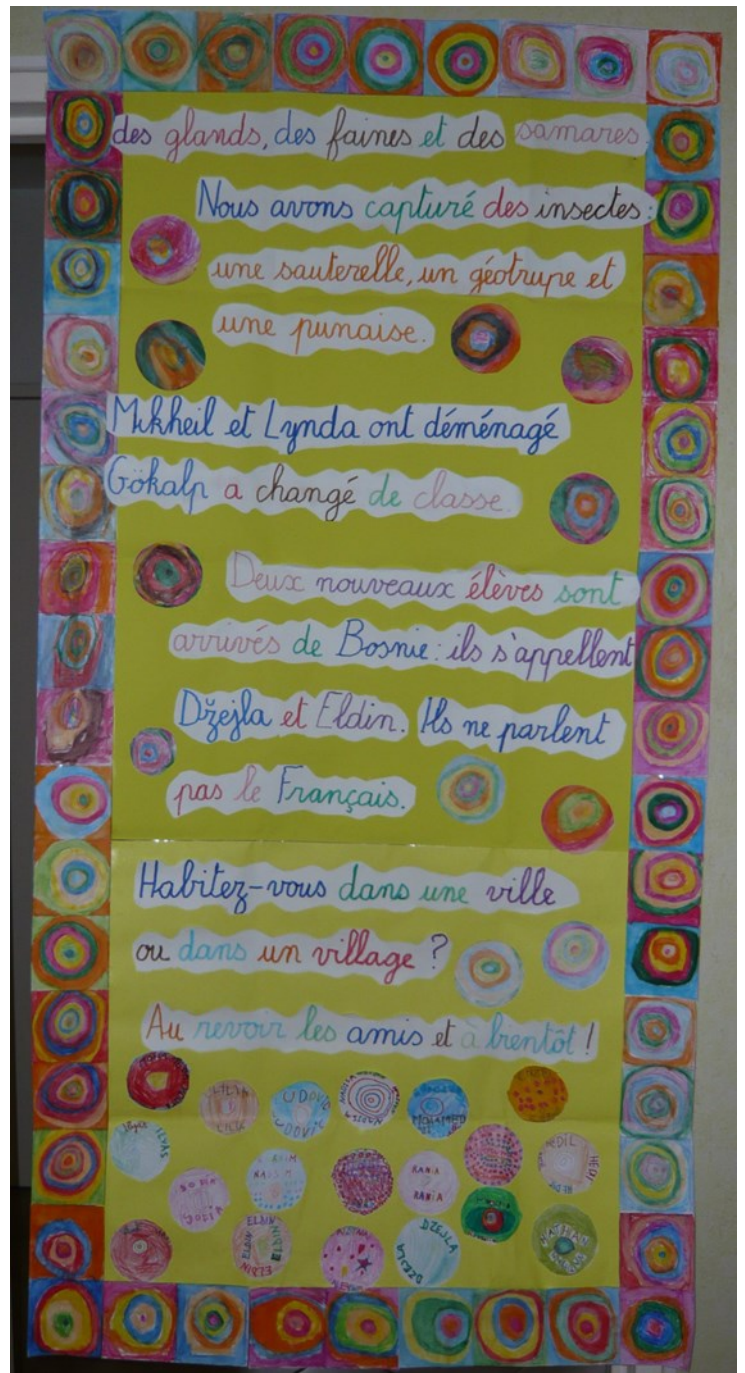 des glands, des faines et des samares.
Nous avons capturé des insectes :
une sauterelle, un géotrupe et
une punaise.
Mikheil et Lynda ont déménagé
Gökalp a changé de classe.
Deux nouveaux élèves sont
arrivés de Bosnie : ils s'appellent
Džejla et Eldin. Ils ne parlent
pas le Français.
Habitez-vous dans une ville
ou dans un village ?
Au revoir les amis et à bientôt !
MOHAMED
ILYAS
RANIA
RANIA
ELDIN
ELDIN
ELDIN
ELDIN
DZEJLA
DZEJLA
NATHAN